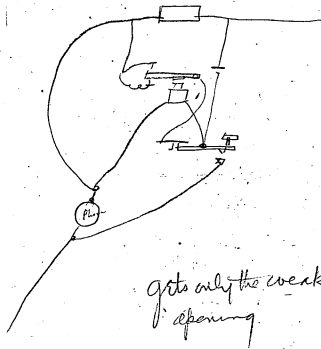 Pho
gets only the weak
opening